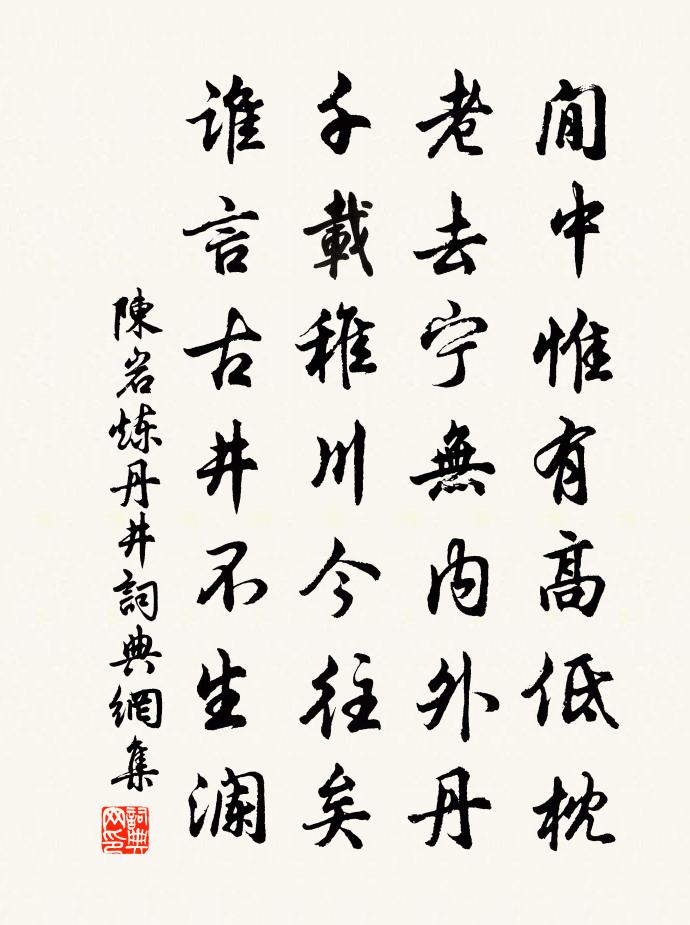 閒中惟有高低枕
老去宁無内外丹
千載稚川今往矣
誰言古井不生澜
陳岩炼丹井詞典網集
詞典网印